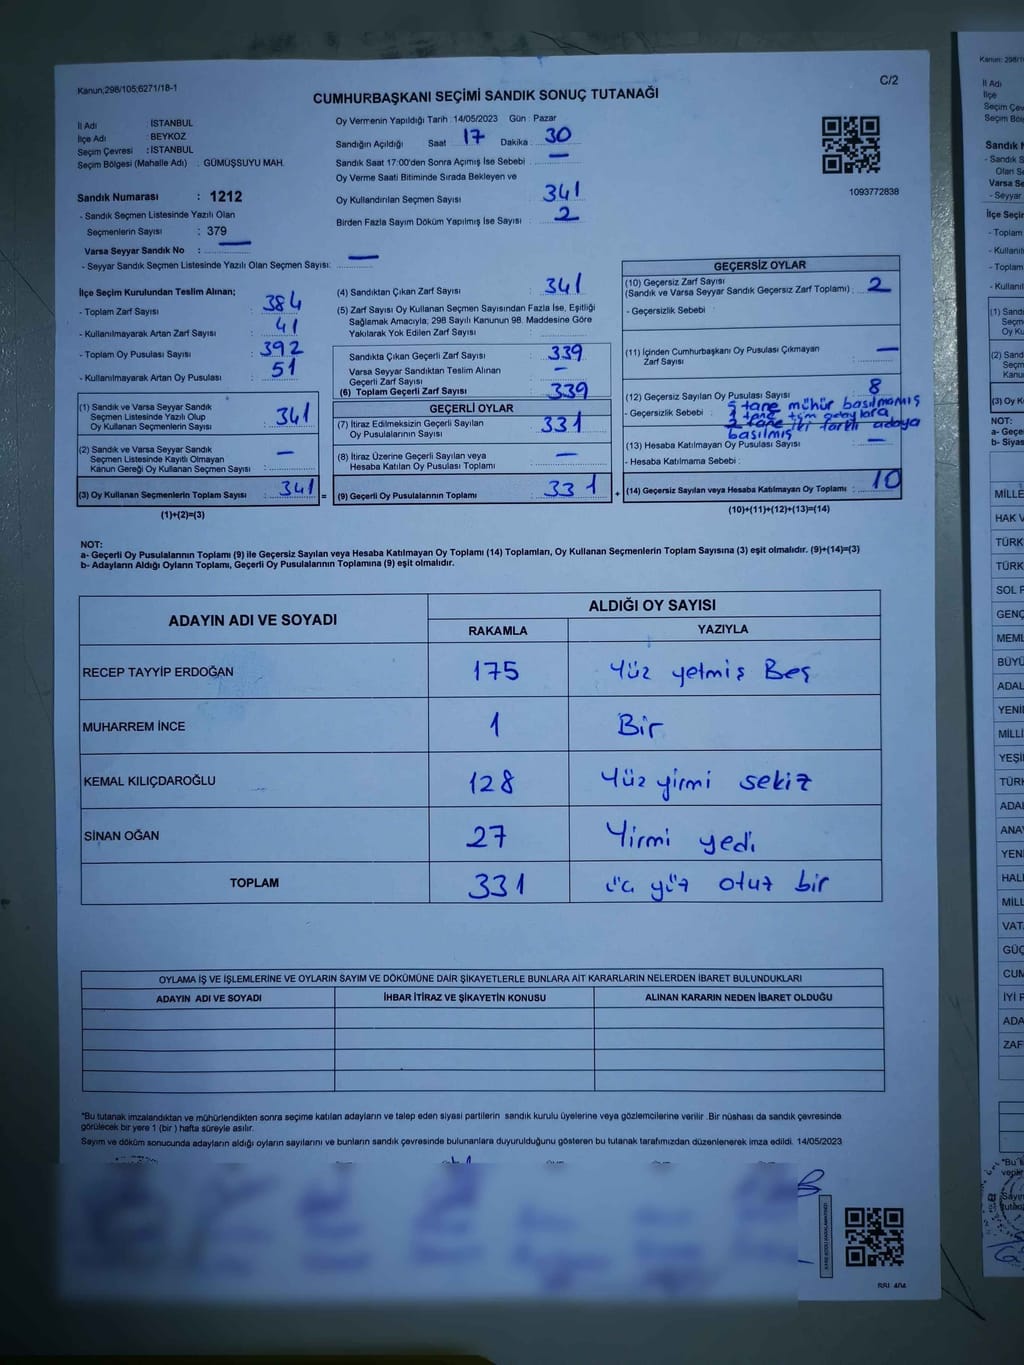 Kanun,298/105;6271/18-1
C/2
CUMHURBAŞKANI SEÇİMİ SANDIK SONUÇ TUTANAĞI
İl Adı : İSTANBUL
İlçe Adı : BEYKOZ
Seçim Çevresi : İSTANBUL
Seçim Bölgesi (Mahalle Adı) : GÜMÜŞSUYU MAH.
Sandık Numarası : 1212
- Sandık Seçmen Listesinde Yazılı Olan
Seçmenlerin Sayısı : 379
Varsa Seyyar Sandık No : —
- Seyyar Sandık Seçmen Listesinde Yazılı Olan Seçmen Sayısı: —
Oy Vermenin Yapıldığı Tarih :14/05/2023 Gün : Pazar
Sandığın Açıldığı Saat 17 Dakika 30
Sandık Saat 17:00'den Sonra Açımış İse Sebebi : —
Oy Verme Saati Bitiminde Sırada Bekleyen ve
Oy Kullandırılan Seçmen Sayısı 341
Birden Fazla Sayım Döküm Yapılmış İse Sayısı : 2
1093772838
İlçe Seçim Kurulundan Teslim Alınan;
- Toplam Zarf Sayısı : 384
- Kullanılmayarak Artan Zarf Sayısı : 41
- Toplam Oy Pusulası Sayısı : 392
- Kullanılmayarak Artan Oy Pusulası : 51
(1) Sandık ve Varsa Seyyar Sandık
Seçmen Listesinde Yazılı Olup
Oy Kullanan Seçmenlerin Sayısı : 341
(2) Sandık ve Varsa Seyyar Sandık
Seçmen Listesinde Kayıtlı Olmayan
Kanun Gereği Oy Kullanan Seçmen Sayısı : —
(3) Oy Kullanan Seçmenlerin Toplam Sayısı : 341
(1)+(2)=(3)
(4) Sandıktan Çıkan Zarf Sayısı : 341
(5) Zarf Sayısı Oy Kullanan Seçmen Sayısından Fazla İse, Eşitliği
Sağlamak Amacıyla, 298 Sayılı Kanunun 98. Maddesine Göre
Yakılarak Yok Edilen Zarf Sayısı :
Sandıkta Çıkan Geçerli Zarf Sayısı : 339
Varsa Seyyar Sandıktan Teslim Alınan
Geçerli Zarf Sayısı : —
(6) Toplam Geçerli Zarf Sayısı : 339
GEÇERLİ OYLAR
(7) İtiraz Edilmeksizin Geçerli Sayılan
Oy Pusulalarının Sayısı : 331
(8) İtiraz Üzerine Geçerli Sayılan veya
Hesaba Katılan Oy Pusulası Toplamı : —
(9) Geçerli Oy Pusulalarının Toplamı : 331
GEÇERSİZ OYLAR
(10) Geçersiz Zarf Sayısı
(Sandık ve Varsa Seyyar Sandık Geçersiz Zarf Toplamı) : 2
- Geçersizlik Sebebi :
(11) İçinden Cumhurbaşkanı Oy Pusulası Çıkmayan
Zarf Sayısı : —
(12) Geçersiz Sayılan Oy Pusulası Sayısı : 8
- Geçersizlik Sebebi : 5 tane mühür basılmamış
1 tane tüm adaylara
2 tane iki farklı adaya
basılmış
(13) Hesaba Katılmayan Oy Pusulası Sayısı : —
- Hesaba Katılmama Sebebi :
(14) Geçersiz Sayılan veya Hesaba Katılmayan Oy Toplamı : 10
(10)+(11)+(12)+(13)=(14)
NOT:
a- Geçerli Oy Pusulalarının Toplamı (9) ile Geçersiz Sayılan veya Hesaba Katılmayan Oy Toplamı (14) Toplamları, Oy Kullanan Seçmenlerin Toplam Sayısına (3) eşit olmalıdır. (9)+(14)=(3)
b- Adayların Aldığı Oyların Toplamı, Geçerli Oy Pusulalarının Toplamına (9) eşit olmalıdır.
ADAYIN ADI VE SOYADI ALDIĞI OY SAYISI
RAKAMLA YAZIYLA
RECEP TAYYİP ERDOĞAN 175 Yüz yetmiş Beş
MUHARREM İNCE 1 Bir
KEMAL KILIÇDAROĞLU 128 Yüz yirmi sekiz
SİNAN OĞAN 27 Yirmi yedi
TOPLAM 331 üç yüz otuz bir
OYLAMA İŞ VE İŞLEMLERİNE VE OYLARIN SAYIM VE DÖKÜMÜNE DAİR ŞİKAYETLERLE BUNLARA AİT KARARLARIN NELERDEN İBARET BULUNDUKLARI
ADAYIN ADI VE SOYADI İHBAR İTİRAZ VE ŞİKAYETİN KONUSU ALINAN KARARIN NEDEN İBARET OLDUĞU
*Bu tutanak imzalandıktan ve mühürlendikten sonra seçime katılan adayların ve talep eden siyasi partilerin sandık kurulu üyelerine veya gözlemcilerine verilir .Bir nüshası da sandık çevresinde
görülecek bir yere 1 (bir ) hafta süreyle asılır.
Sayım ve döküm sonucunda adayların aldığı oyların sayılarını ve bunların sandık çevresinde bulunanlara duyurulduğunu gösteren bu tutanak tarafımızdan düzenlenerek imza edildi. 14/05/2023
Kanun: 298/1
İl Adı
İlçe
Seçim Çev
Seçim Böl
Sandık N
- Sandık S
Varsa Se
- Seyyar
İlçe Seçi
- Toplam
- Kullanıl
- Toplam
- Kullanıl
(1) Sand
Seçm
Oy Ku
(2) Sandı
(3) Oy K
NOT:
a- Geçe
b- Siyas
MİLLE
HAK V
TÜRK
TÜRK
SOL P
GENÇ
MEML
BÜYÜ
ADAL
YENİ
MİLLİ
YEŞİ
TÜRK
ADAL
ANAV
YENİ
HALI
MİLL
VAT
GÜÇ
CUM
İYİ P
ADA
ZAF